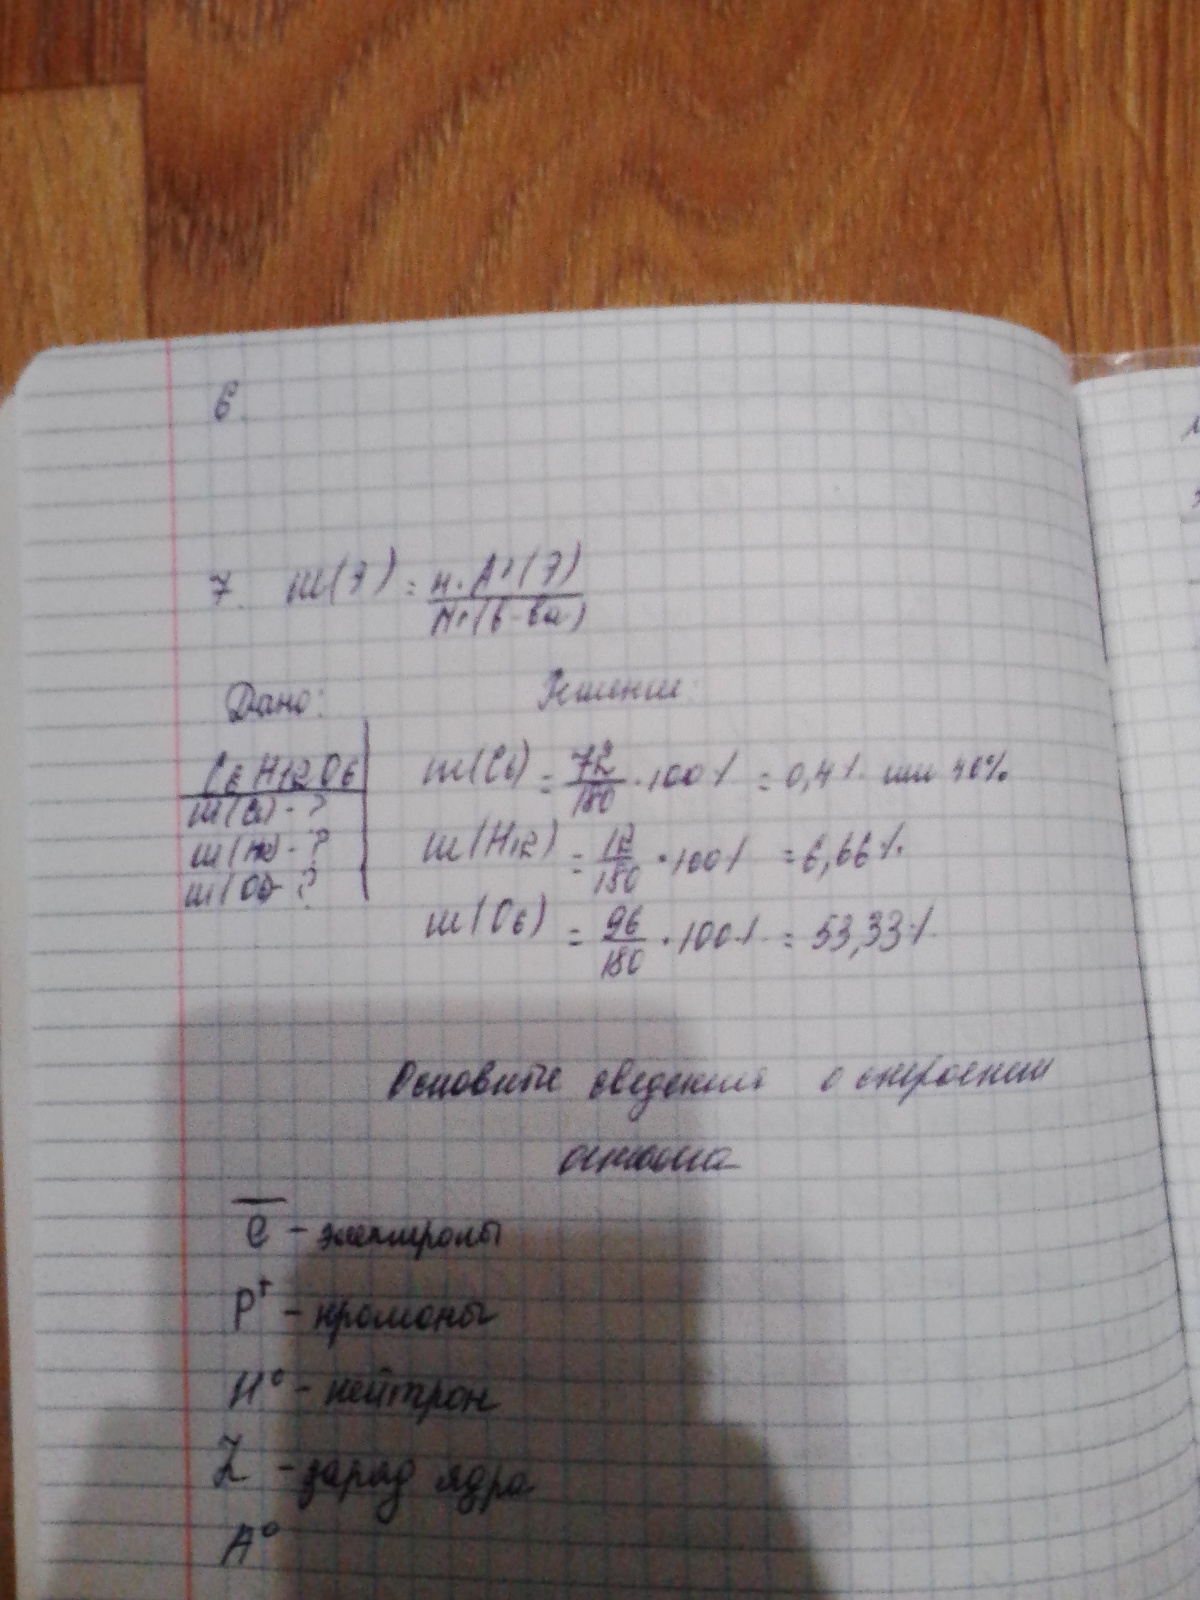 6.
7. ш(э) = н·Ar(э) / Mr(в-ва)
Дано:
Решение:
C6H12O6
ш(C6) - ?
ш(H12) - ?
ш(O6) - ?
ш(C6) = 72/180 · 100% = 0,4% или 40%
ш(H12) = 12/180 · 100% = 6,66%.
ш(O6) = 96/180 · 100% = 53,33%
Основные сведения о строении
атома
e̅ - электроны
P⁺ - протоны
н⁰ - нейтрон
Z - заряд ядра
A⁰